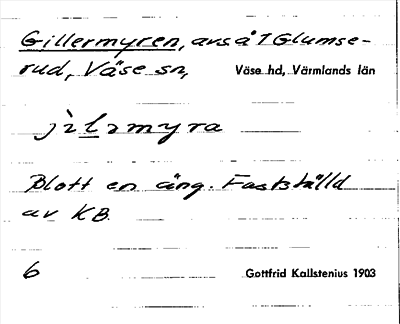 Gillermyren, avs å 1 Glumse-
rud, Väse sn, Väse hd, Värmlands län
jìləmyra
Blott en äng. Fastställd
av KB.
6 Gottfrid Kallstenius 1903